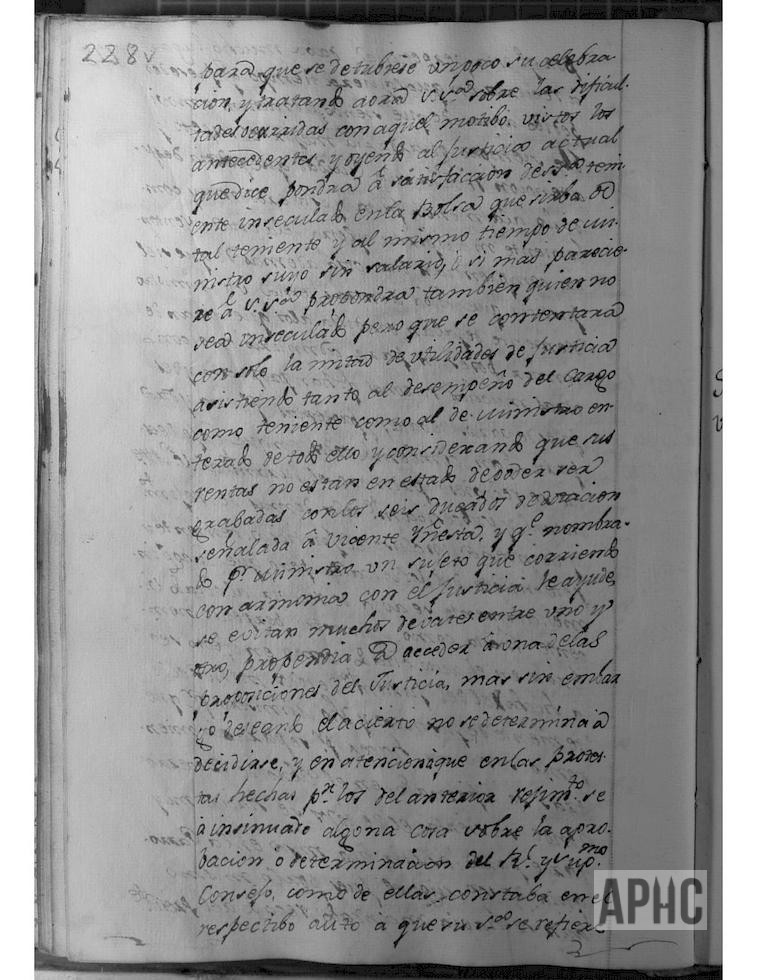 228v
para que se detubiese un poco su celebra-
cion y tratando aora S. S.ria sobre las dificul-
tades ocurridas con aquel motibo, vistos los
antecedentes y oyendo al Justicia actual
que dice pondra â satisfaccion de S. S.ria ten-
ente inseculado en la Bolsa que sirba de
tal teniente y al mismo tiempo de mi-
nistro suyo sin salario, ò si mas parecie-
re â S. S.ria propondra tambien quien no
sea inseculado pero que se contentara
con solo la mitad de utilidades de Justicia
asistiendo tanto al desempeño del cargo
como teniente como al de ministro en-
terado de todo ello y considerando que sus
rentas no estan en estado de poder ser
grabadas con los seis ducados de dotacion
señalada â Vicente Ynesta, y q.e nombra-
do p.r ministro un sujeto que corriendo
con armonia con el Justicia le ayude,
se evitan muchos devates entre uno y
otro, propendia â acceder â una de las
proposiciones del Justicia, mas sin embar
go deseando el acierto no se determina â
decidirse, y en atencion â que en las protes-
tas hechas p.r los del anterior rejim.to se
â insinuado algona cosa sobre la apro-
bacion ò determinacion del R.l y Sup.mo
Consejo, como de ellas constaba en el
respectibo auto â que su S.ria se refiere
APHC